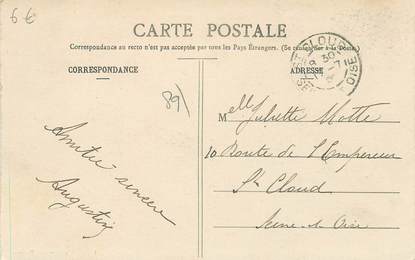 6€
CARTE POSTALE
Correspondance au recto n'est pas acceptée par tous les Pays Étrangers. (Se renseigner à la Poste).
CORRESPONDANCE
ADRESSE
89
Amitié sincère
Augustin
Melle Juliette Motte
10 Route de l'Empereur
St Cloud
Seine-et-Oise